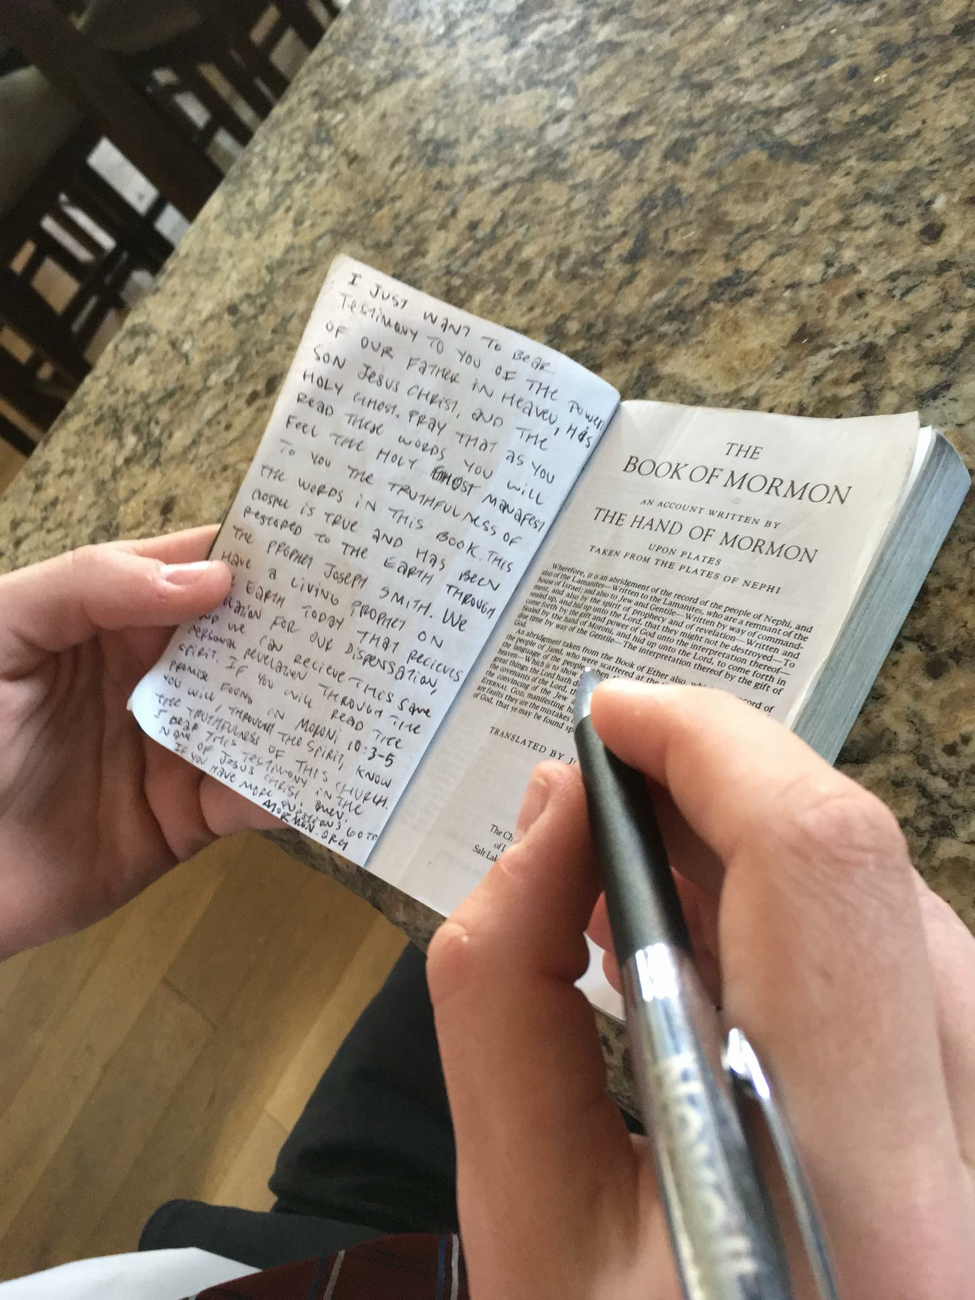 I JUST WANT TO BEAR
TESTIMONY TO YOU OF THE POWER
OF OUR FATHER IN HEAVEN, HIS
SON JESUS CHRIST, AND THE
HOLY GHOST. PRAY THAT AS YOU
READ THESE WORDS YOU WILL
FEEL THE HOLY GHOST MANIFEST
TO YOU THE TRUTHFULNESS OF
THE WORDS IN THIS BOOK. THIS
GOSPEL IS TRUE AND HAS BEEN
RESTORED TO THE EARTH THROUGH
THE PROPHET JOSEPH SMITH. WE
HAVE A LIVING PROPHET ON
EARTH TODAY THAT RECIEVES
FOR OUR DISPENSATION,
AND WE CAN RECIEVE THIS SAME
PERSONAL REVELATION THROUGH THE
SPIRIT. IF YOU WILL READ THE
PROMISE FOUND IN MORONI 10:3-5
YOU WILL, THROUGH THE SPIRIT, KNOW
THE TRUTHFULNESS OF THIS CHURCH.
I BEAR THIS TESTIMONY IN THE
NAME OF JESUS CHRIST, AMEN.
IF YOU HAVE MORE QUESTIONS GO TO
MORMON.ORG
THE
BOOK OF MORMON
AN ACCOUNT WRITTEN BY
THE HAND OF MORMON
UPON PLATES
TAKEN FROM THE PLATES OF NEPHI
Wherefore, it is an abridgment of the record of the people of Nephi, and
also of the Lamanites—Written to the Lamanites, who are a remnant of the
house of Israel; and also to Jew and Gentile—Written by way of command-
ment, and also by the spirit of prophecy and of revelation—Written and
sealed up, and hid up unto the Lord, that they might not be destroyed—To
come forth by the gift and power of God unto the interpretation thereof—
Sealed by the hand of Moroni, and hid up unto the Lord, to come forth in
due time by way of the Gentile—The interpretation thereof by the gift of
God.
An abridgment taken from the Book of Ether also, record of
the people of Jared, who were scattered at the
the language of the people
heaven—Which is to show
great things the Lord hath
the covenants of the Lord, th
the convincing of the Jew
ETERNAL GOD, manifesting
are faults they are the mistakes
of God, that ye may be found sp
TRANSLATED BY
The Ch
of L
Salt Lak